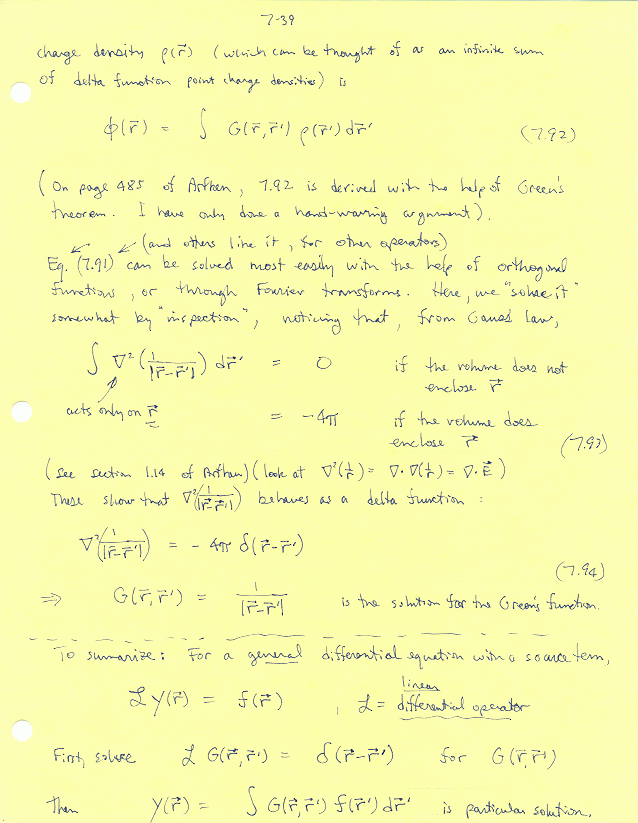 7-39
charge density ρ(r⃗) (which can be thought of as an infinite sum
of delta function point charge densities) is
ϕ(r⃗) = ∫ G(r⃗,r⃗') ρ(r⃗') dr⃗' (7.92)
(On page 485 of Arfken, 7.92 is derived with the help of Green's
theorem. I have only done a hand-waving argument).
(and others like it, for other operators)
Eq. (7.91) can be solved most easily with the help of orthogonal
functions, or through Fourier transforms. Here, we "solve it"
somewhat by "inspection", noticing that, from Gauss' law,
∫ ∇² (1/|r⃗-r⃗'|) dr⃗' = 0 if the volume does not
enclose r⃗
acts only on r⃗ = -4π if the volume does
enclose r⃗ (7.93)
(see section 1.14 of Arfken) (look at ∇²(1/r) = ∇·∇(1/r) = ∇·E⃗)
These show that ∇²(1/|r⃗-r⃗'|) behaves as a delta function:
∇²(1/|r⃗-r⃗'|) = -4π δ(r⃗-r⃗')
(7.94)
⇒ G(r⃗,r⃗') = 1/|r⃗-r⃗'| is the solution for the Green's function.
To sumarize: For a general differential equation with a source term,
linear
ℒ y(r⃗) = f(r⃗) , ℒ = differential operator
First, solve ℒ G(r⃗,r⃗') = δ(r⃗-r⃗') for G(r⃗,r⃗')
Then y(r⃗) = ∫ G(r⃗,r⃗') f(r⃗') dr⃗' is particular solution.